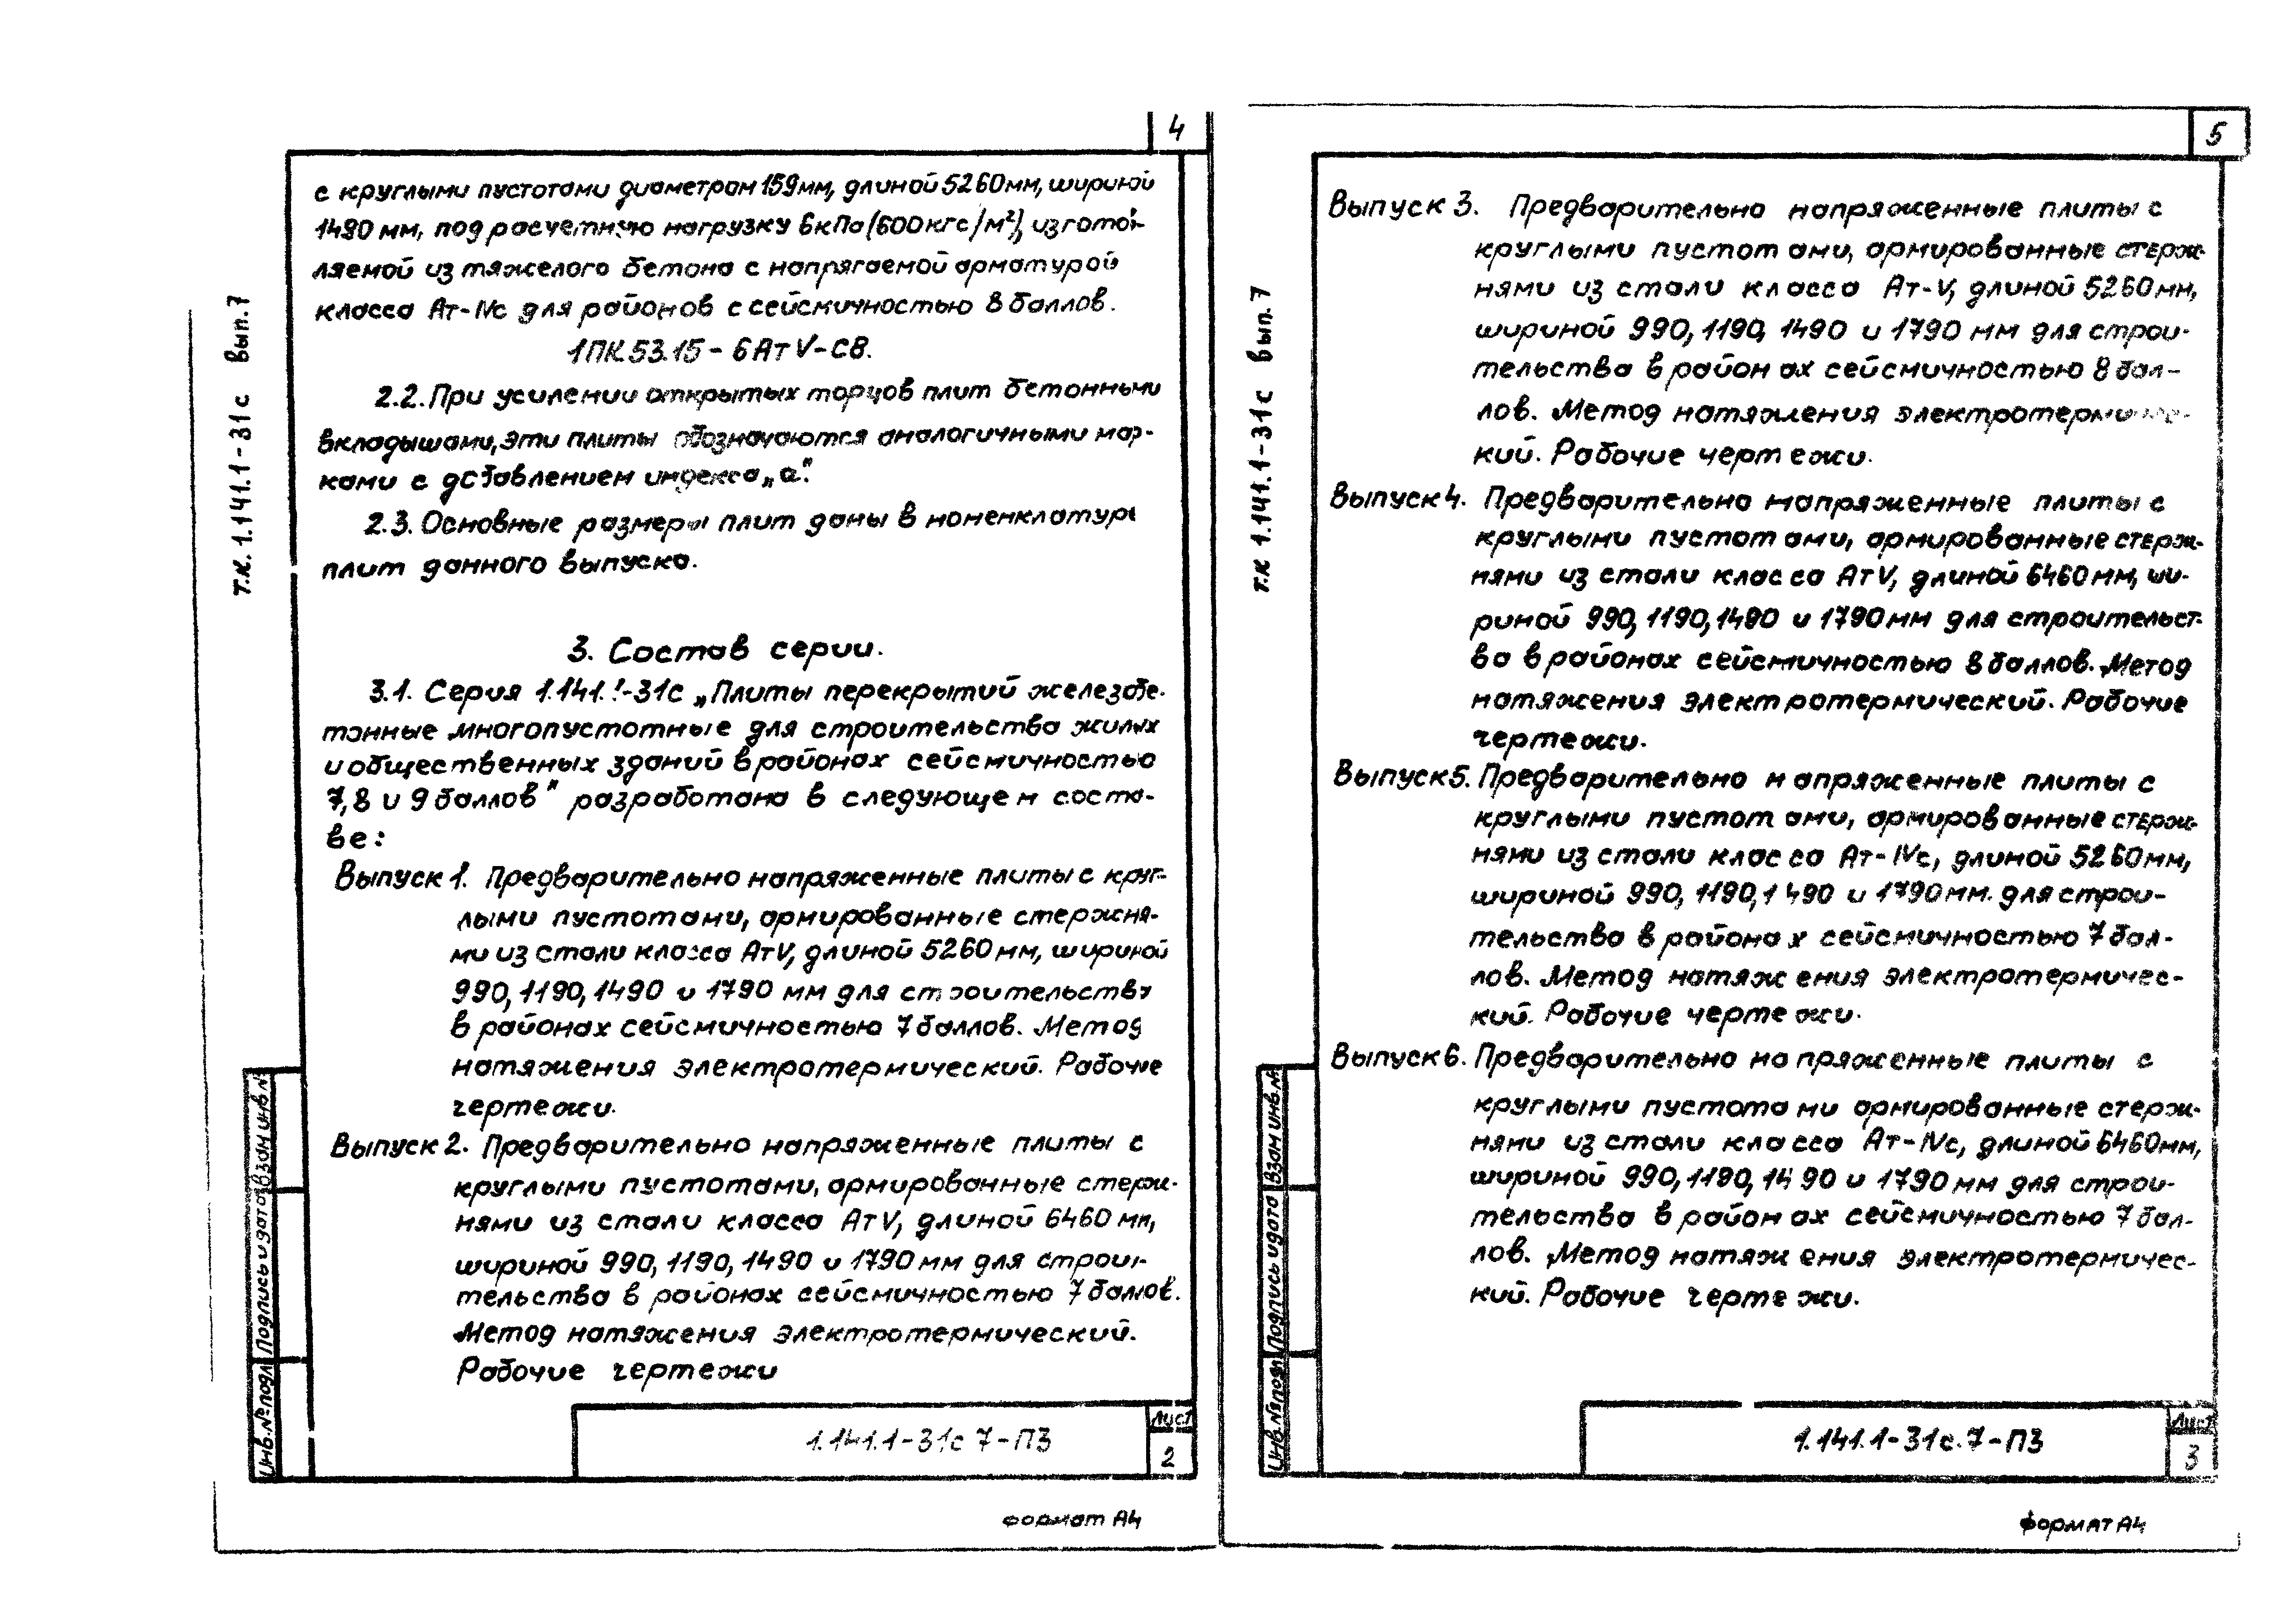 4
с круглыми пустотами диаметром 159мм, длиной 5260мм, шириной
1490 мм, под расчетную нагрузку 6кПа (600кгс/м²), изготов-
ляемой из тяжелого бетона с напрягаемой арматурой
класса Ат-IVс для районов с сейсмичностью 8 баллов.
1ПК53.15-6АтV-С8.
2.2. При усилении открытых торцов плит бетонными
вкладышами, эти плиты обозначаются аналогичными мар-
ками с добавлением индекса „а".
2.3. Основные размеры плит даны в номенклатуре
плит данного выпуска.
3. Состав серии.
3.1. Серия 1.141.1-31с „Плиты перекрытий железобе-
тонные многопустотные для строительства жилых
и общественных зданий в районах сейсмичностью
7, 8 и 9 баллов" разработана в следующем соста-
ве:
Выпуск 1. Предварительно напряженные плиты с круг-
лыми пустотами, армированные стержня-
ми из стали класса АтV, длиной 5260 мм, шириной
990, 1190, 1490 и 1790 мм для строительства
в районах сейсмичностью 7 баллов. Метод
натяжения электротермический. Рабочие
чертежи.
Выпуск 2. Предварительно напряженные плиты с
круглыми пустотами, армированные стерж-
нями из стали класса АтV, длиной 6460 мм,
шириной 990, 1190, 1490 и 1790 мм для строи-
тельства в районах сейсмичностью 7 баллов.
Метод натяжения электротермический.
Рабочие чертежи
т.к. 1.141.1-31с вып.7
Взам инв.№
Подпись и дата
Инв.№ подл
1.141.1-31с 7-ПЗ
Лист
2
формат А4
5
Выпуск 3. Предварительно напряженные плиты с
круглыми пустотами, армированные стерж-
нями из стали класса Ат-V, длиной 5260мм,
шириной 990, 1190, 1490 и 1790 мм для строи-
тельства в районах сейсмичностью 8 бал-
лов. Метод натяжения электротермичес-
кий. Рабочие чертежи.
Выпуск 4. Предварительно напряженные плиты с
круглыми пустотами, армированные стерж-
нями из стали класса АтV, длиной 6460мм, ши-
риной 990, 1190, 1490 и 1790мм для строительст-
ва в районах сейсмичностью 8 баллов. Метод
натяжения электротермический. Рабочие
чертежи.
Выпуск 5. Предварительно напряженные плиты с
круглыми пустотами, армированные стерж-
нями из стали класса Ат-IVс, длиной 5260мм,
шириной 990, 1190, 1490 и 1790мм. для строи-
тельства в районах сейсмичностью 7 бал-
лов. Метод натяжения электротермичес-
кий. Рабочие чертежи.
Выпуск 6. Предварительно напряженные плиты с
круглыми пустотами армированные стерж-
нями из стали класса Ат-IVс, длиной 6460мм,
шириной 990, 1190, 1490 и 1790 мм для строи-
тельства в районах сейсмичностью 7 бал-
лов. Метод натяжения электротермичес-
кий. Рабочие чертежи.
т.к 1.141.1-31с вып.7
Взам инв.№
Подпись и дата
Инв.№ подл
1.141.1-31с.7-ПЗ
Лист
3
формат А4